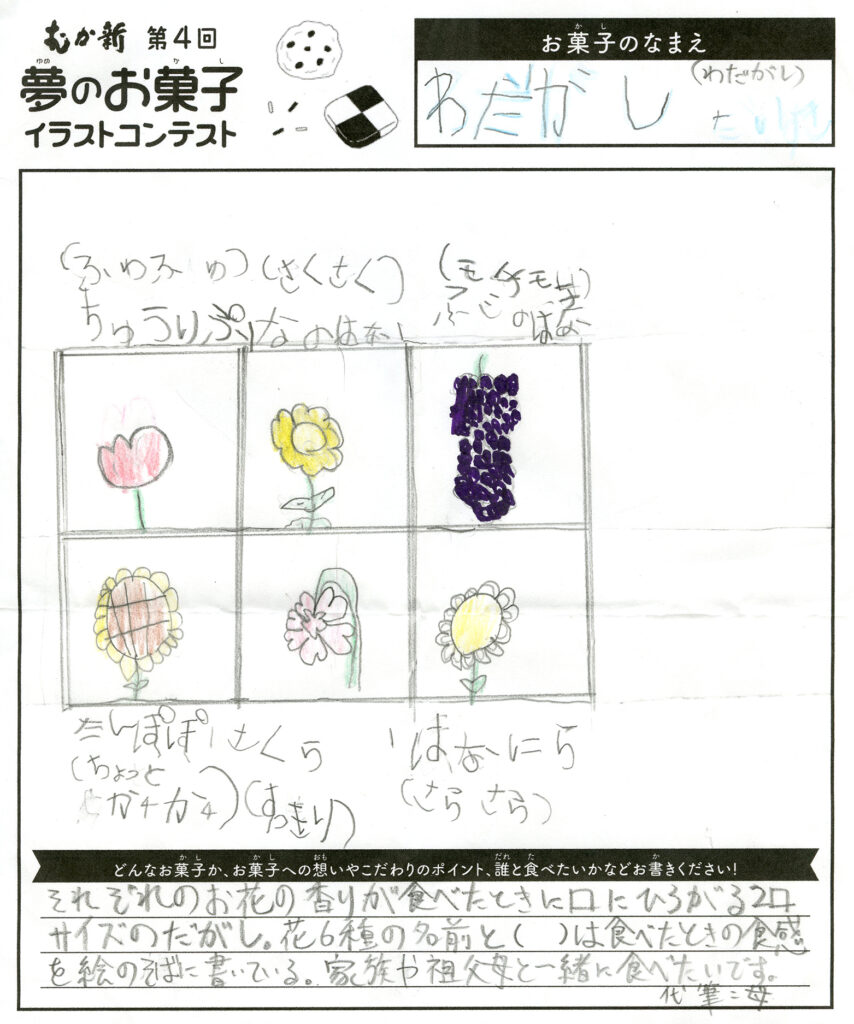 むか新 第4回
夢のお菓子
イラストコンテスト
お菓子のなまえ
わだがし
(わだがし)
(ふわふわ) (さくさく) (モチモチ)
ちゅうりぷ なのはな ふじのはな
たんぽぽ さくら はなにら
(ちょっとガチガチ) (すっきり) (さらさら)
どんなお菓子か、お菓子への想いやこだわりのポイント、誰と食べたいかなどお書きください!
それぞれのお花の香りが食べたときに口にひろがる2口
サイズのだがし。花6種の名前と( )は食べたときの食感
を絵のそばに書いている。家族や祖父母と一緒に食べたいです。
代筆:母